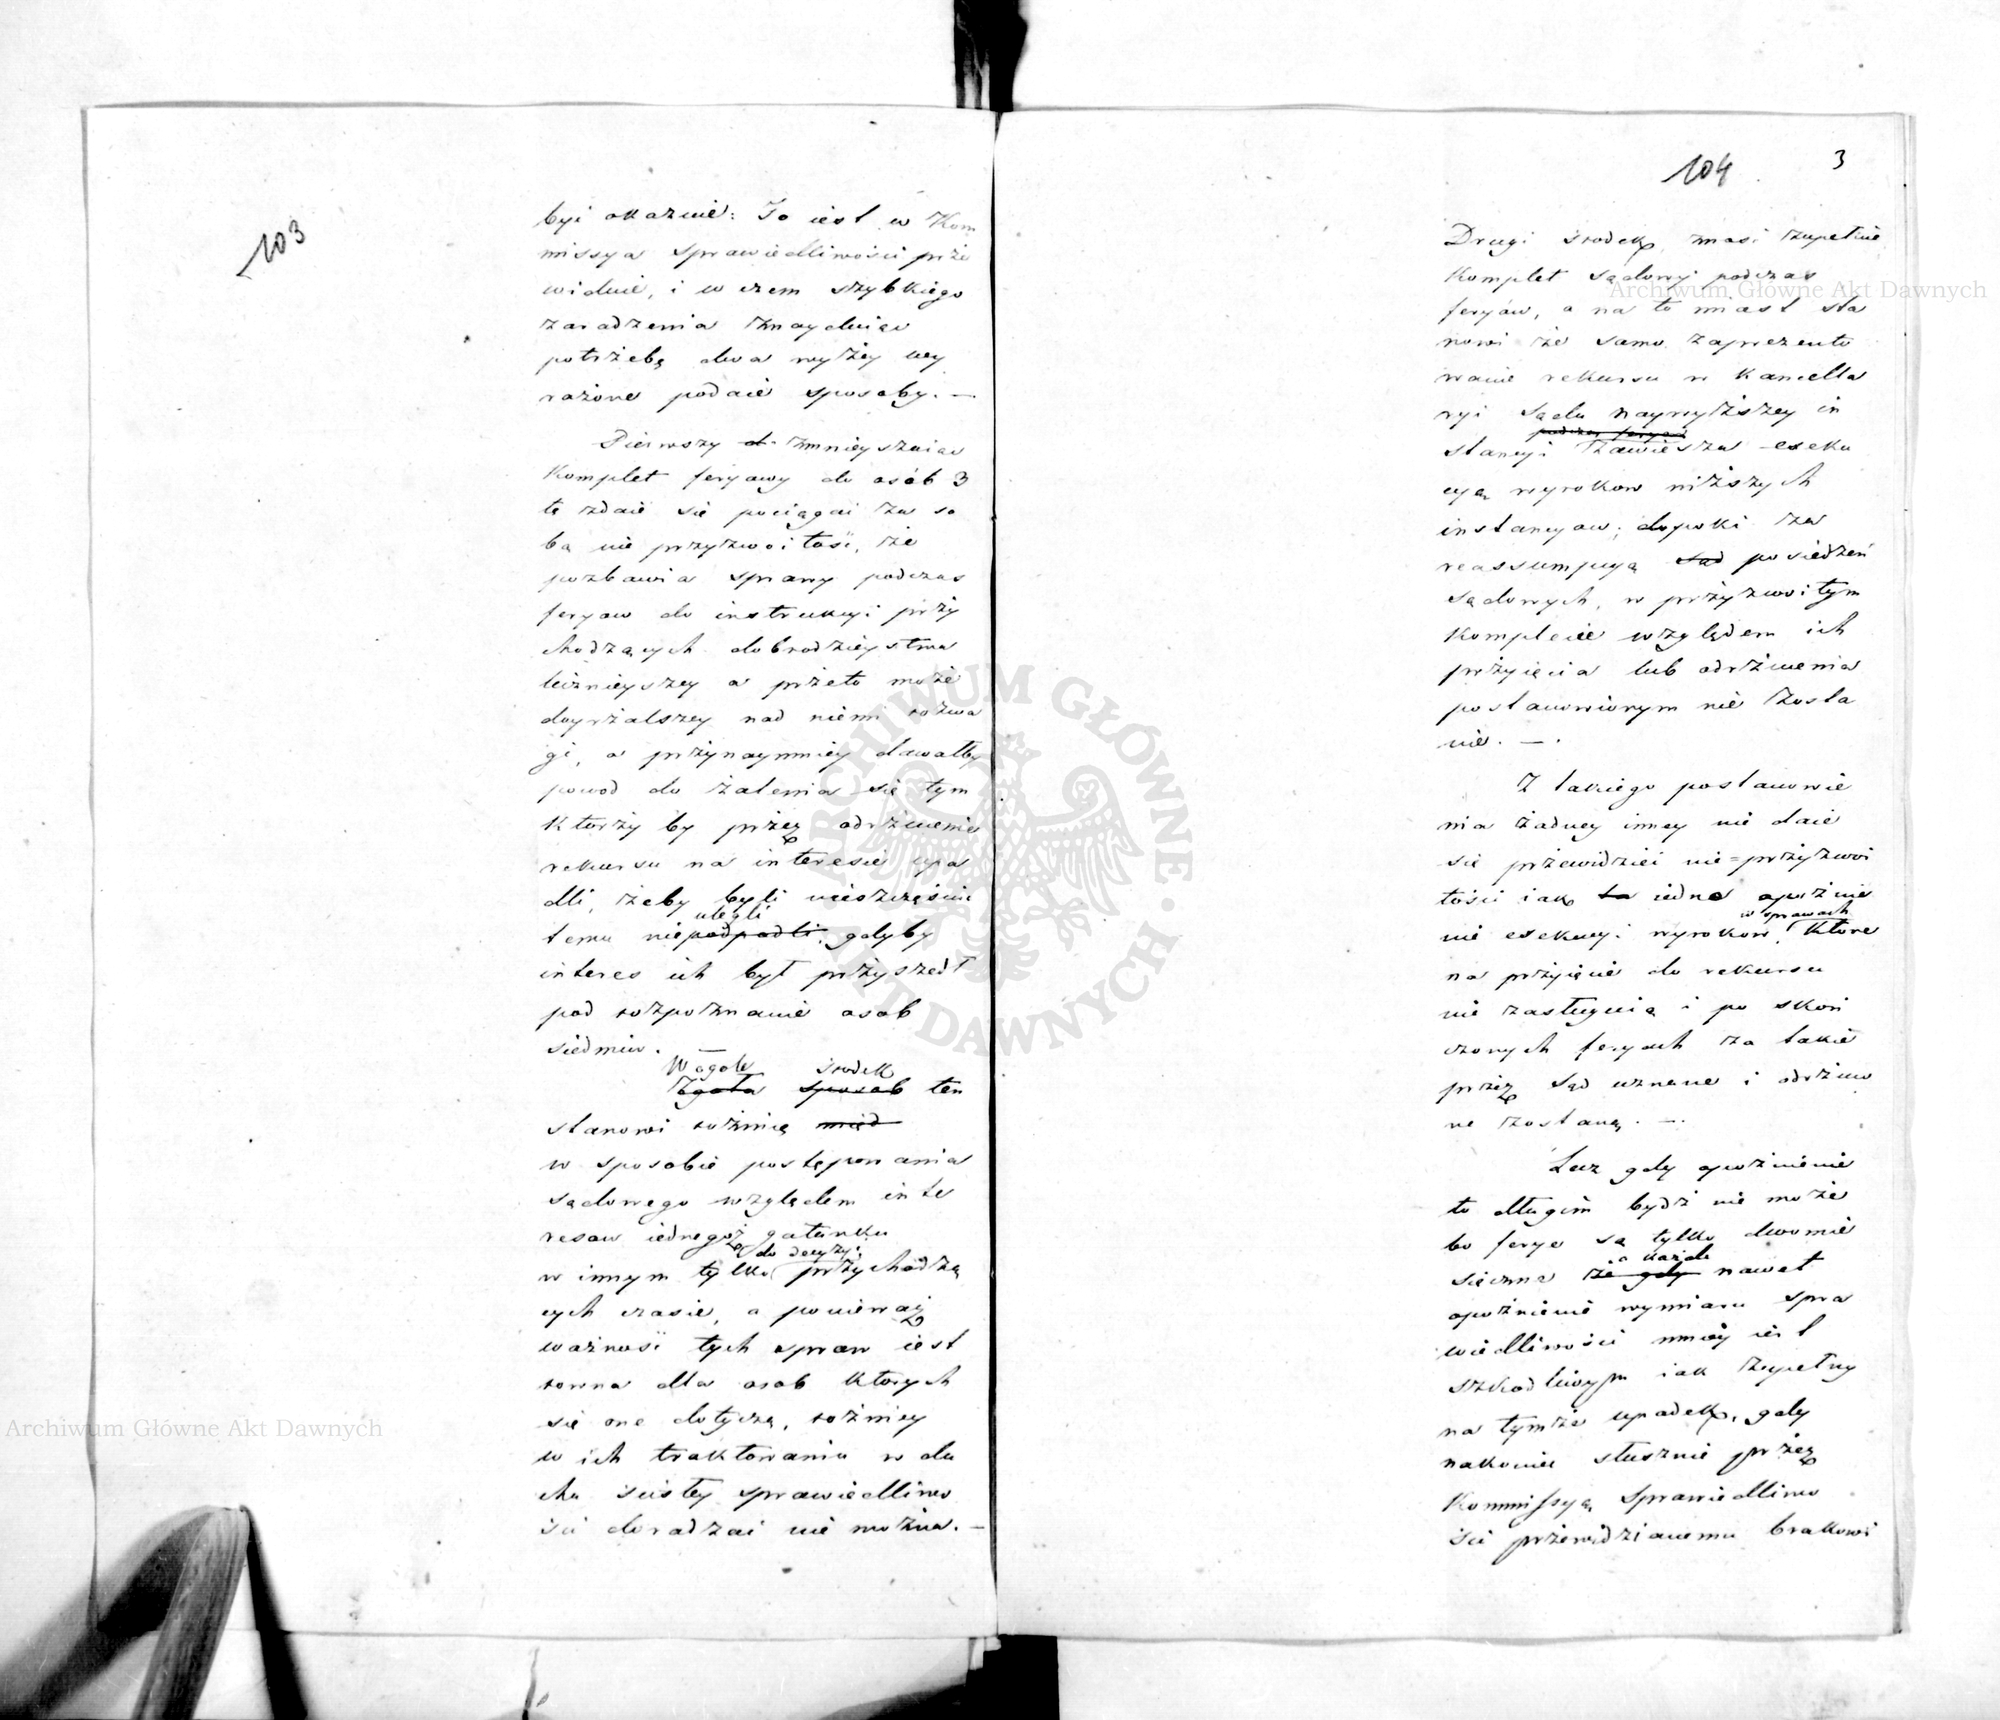 103
być okaznie: To iest w Kom
missya Sprawiedliwości prze
widuie, i w czem szybkiego
zaradzenia znayduiąc
potrzebę dwa wyżey wy
rażone podaie sposoby. —
Pierwszy d. zmnieyszaiąc
Komplet feryowy do osób 3
te zdaie się pociągać za so
bą nie przyzwoitość, że
pozbawia sprawy podczas
feryow do instrukcyi przy
chodzących dobrodzieystwa
licznieyszey a przeto może
doyrzalszey nad niemi rozwa
gi, a przynaymniey dawałby
powod do żalenia się tym
ktorzy by przez odrzucenie
rekursu na interesie upa
dli, żeby byli nieszczęściu
ulegli
temu niepodpadli, gdyby
interes ich był przyszedł
pod rozpoznanie osob
siedmiu. —
Wogole środek
Zgoła sposob ten
stanowi rożnicę międ
w sposobie postępowania
sądowego względem inte
resow iednegoż gatunku
do decyzyi
w innym tylko przychodzą
cych czasie, a ponieważ
ważność tych spraw iest
rowna dla osob ktorych
się one dotyczą, rożnicy
w ich traktowaniu w du
chu ścisłey sprawiedliwo
ści doradzać nie można. —
104
3
Drugi środek znosi zupełnie
Komplet Sądowy podczas
feryów, a na to miast sta
nowi że samo zaprezento
wanie rekursu w Kancella
ryi Sądu naywyższey in
podczas feryow
stancyi zawiesza exeku
cyą wyrokow niższych
instancyow; dopoki za
reassumpcyą Sąd posiedzeń
Sądowych, w przyzwoitym
Komplecie względem ich
przyięcia lub odrzucenia
postanowionym nie zosta
nie. —.
Z takiego postanowie
nia żadney inney nie daie
się przewidzieć nie=przyzwoi
tości iak ta iedno opoźnie
w sprawach
nie exekucyi wyrokow, ktore
na przyięcie do rekursu
nie zasługuią i po skoń
czonych feryach za takie
przez Sąd uznane i odrzuco
ne zostaną. —.
Lecz gdy opoźnienie
to długim bydź nie może
bo ferye są tylko dwomie
a każde
sięczne że gdy nawet
opoźnienie wymiaru spra
wiedliwości mniey iest
szkodliwym iak zupełny
na tymże upadek, gdy
nakoniec słusznie przez
Kommissyą Sprawiedliwo
ści przewidzianemu brakowi
Archiwum Główne Akt Dawnych
Archiwum Główne Akt Dawnych
ARCHIWUM GŁÓWNE AKT DAWNYCH